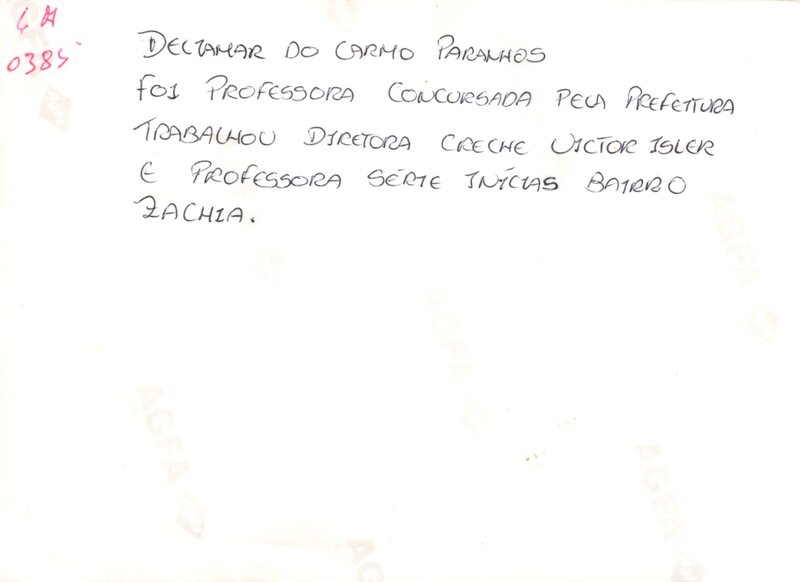 0385
DECIAMAR DO CARMO PARANHOS
FOI PROFESSORA CONCURSADA PELA PREFEITURA
TRABALHOU DIRETORA CRECHE VICTOR ISLER
E PROFESSORA SÉRIE INÍCIAS BAIRRO
ZACHIA.
AGFA
AGFA
AGFA
AGFA
AGFA